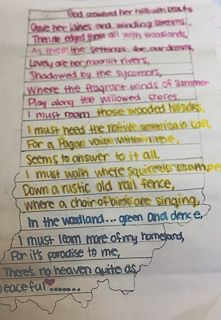 God crowned her hills with beauty
Gave her lakes and winding streams,
Then he edged them all with woodlands,
As the settings for our dreams,
Lovely are her moonlit rivers,
Shadowed by the sycamores,
Where the fragrant winds of Summer
Play along the willowed shores.
I must roam those wooded hillsides,
I must heed the native american call,
For a Pagan voice within me,
Seems to answer to it all.
I must walk where squirrels
Down a rustic old rail fence,
where a choir of birds are singing,
In the woodland...green and dence,
I must learn more of my homeland,
For it's paradise to me,
There's no heaven quite as
peaceful